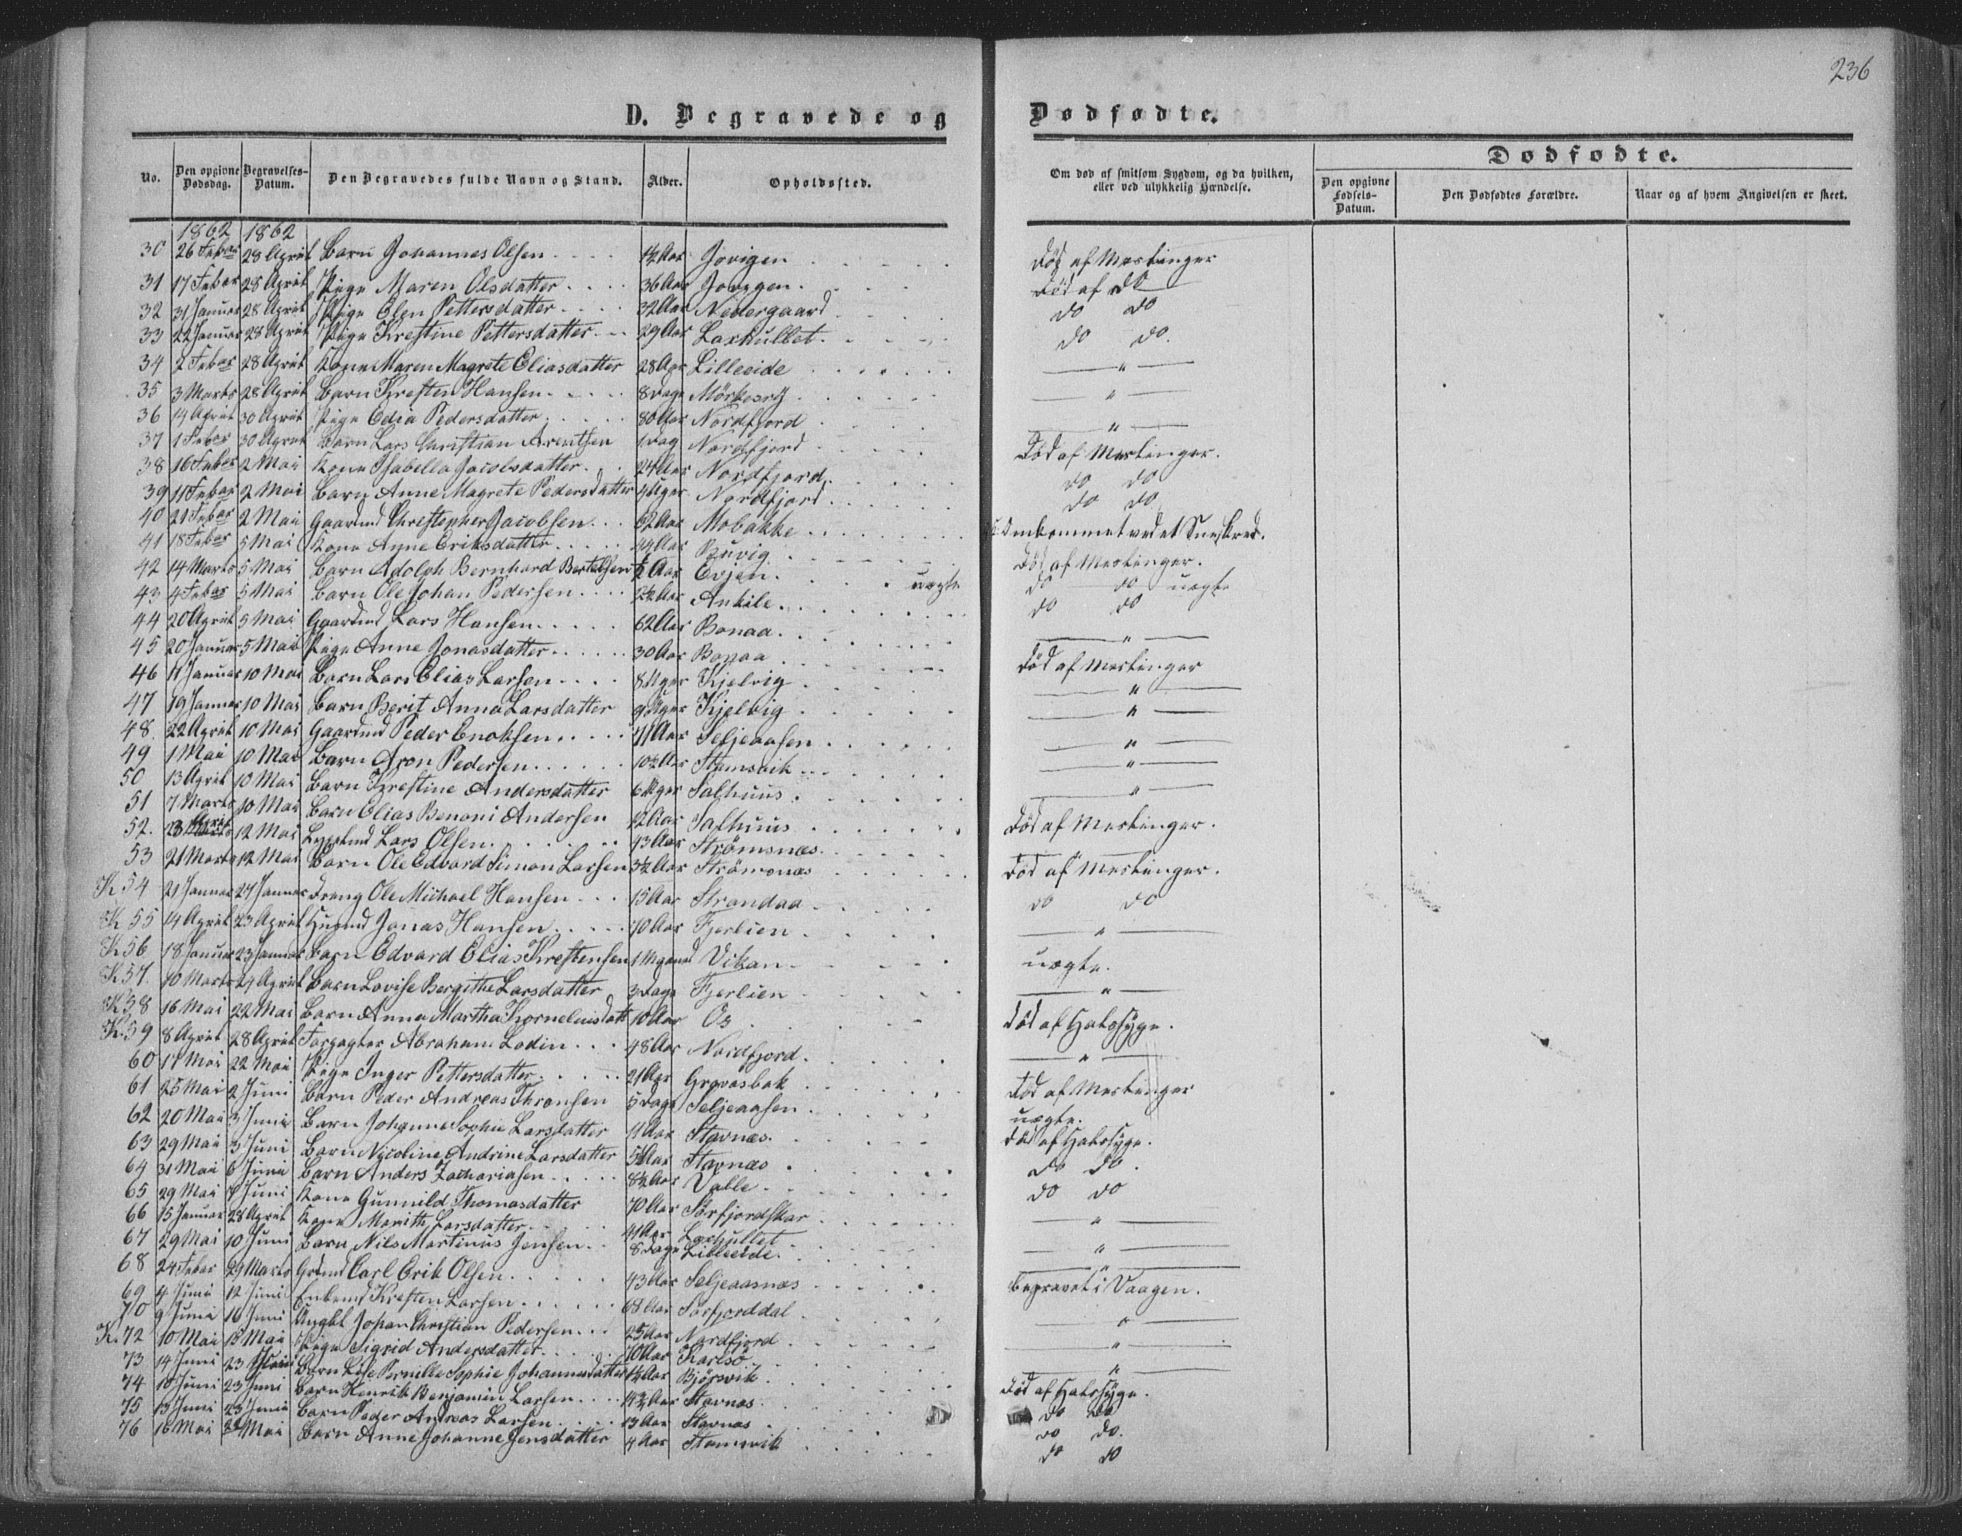 236
D. Begravede og Dødfødte.
No. | Den opgivne Dødsdag. | Begravelses-Datum. | Den Begravedes fulde Navn og Stand. | Alder. | Opholdssted. | Om død af smitsom Sygdom, og da hvilken, eller ved ulykkelig Hændelse. | Dødfødte. Den opgivne Fødsels-Datum. | Den Dødfødtes Forældre. | Naar og af hvem Angivelsen er skeet.
1862 1862
30 26 Febar 28 April Barn Johannes Olsen 1½ Aar Jovigen Død af Mæslinger
31 17 Febar 28 April Pige Maren Olsdatter 36 Aar Jovigen Død af do
32 31 Januar 28 April Pige Elen Pettersdatter 32 Aar Nedergaard do do
33 22 Januar 28 April Pige Krestine Pettersdatter 29 Aar Laxhullet do do
34 2 Febar 28 April Kone Maren Magrete Eliasdatter 28 Aar Lilleeide "
35 3 Marts 28 April Barn Kresten Hansen 8 Dage "
36 14 April 30 April Pige Edia Pedersdatter 80 Aar Nordfjord "
37 1 Febar 30 April Barn Lars Christian Arentsen 1 Dag Nordfjord Død af Mæslinger.
38 16 Febar 2 Mai Kone Isabella Jacobsdatter 24 Aar Nordfjord do do
39 11 Febar 2 Mai Barn Anne Magrete Pedersdatter 4 Uger Nordfjord do do
40 21 Febar 2 Mai Gaardmd Christopher Jacobsen 62 Aar Mobakke Omkommet ved et Sneskred.
41 18 Febar 5 Mai Kone Anne Eriksdatter 44 Aar Buvig Død af Mæslinger.
42 14 Marts 5 Mai Barn Adolph Bernhard Bertelsen ½ Aar Evjen uægte do do uægte
43 4 Febar 5 Mai Barn Ole Johan Pedersen 2½ Aar Ankile do do
44 20 April 5 Mai Gaardmd Lars Hansen 62 Aar Bonaa "
45 20 Januar 5 Mai Pige Anne Jonasdatter 30 Aar Bonaa Død af Mæslinger
46 11 Januar 10 Mai Barn Lars Elias Larsen 8 Uger Kjelvig "
47 19 Januar 10 Mai Barn Berit Anna Larsdatter 9 Uger Kjelvig "
48 22 April 10 Mai Gaardmd Peder Enoksen 71 Aar Seljeaasen "
49 1 Mai 10 Mai Barn Aron Pedersen 10½ Aar Stamsvik "
50 13 April 10 Mai Barn Krestine Andersdatter 6 Uger Salhuus "
51 7 Marts 10 Mai Barn Elias Benoni Andersen 12 Aar Salhuus Død af Mæslinger.
52. 23 April 12 Mai Lars Olsen 43 Aar Strømsnæs
53 21 Marts 12 Mai Barn Ole Edvard Simon Larsen 3½ Aar Strømsnæs Død af Mæslinger.
K 54 21 Januar 27 Januar Dreng Ole Michael Hansen 15 Aar Strandaa do do
K 55 14 April 23 April Huusmd Jonas Hansen 70 Aar Fjerlien "
K 56 18 Januar 23 Januar Barn Edvard Elias Krestensen 1 Maaned Vikan uægte.
K 57. 10 Marts 24 April Barn Lovise Bergithe Larsdatter 3 Dage Fjerlien "
K 58 16 Mai 22 Mai Barn Anna Martha Korneliusdatt 10 Aar Os Død af Halssyge.
K 59 8 April 28 April Forpagter Abraham Lodin 48 Aar Nordfjord "
60 17 Mai 22 Mai Pige Inger Pettersdatter 21 Aar Grovasbak Død af Mæslinger
61 25 Mai 2 Juni Barn Peder Andreas Thronsen 5 Dage Seljeaasen uægte.
62 20 Mai 3 Juni Barn Johanne Sophie Larsdatter 11 Aar Stavnæs Død af Halssyge.
63 29 Mai 3 Juni Barn Nicoline Andrine Larsdatter 5 Aar Stavnæs do do
64 31 Mai 6 Juni Barn Anders Zachariasen 8½ Aar Valle do do
65 29 Mai 8 Juni Kone Gunnild Thomasdatter 70 Aar Sørfjordskar "
66 15 Januar 28 April Kone Marith Larsdatter 41 Aar Laxhullet "
67 29 Mai 10 Juni Barn Nils Martinus Jensen 8 Dage Lilleeide "
68 24 Febar 29 Marts Grdmd Carl Erik Olsen 43 Aar Seljeaasnæs Begravet i Vaagen.
69 4 Juni 12 Juni Enkemd Kresten Larsen 68 Aar Sørfjorddal "
70 9 Juni 16 Juni Ungkl Johan Christian Pedersen 25 Aar Nordfjord "
K. 72 10 Mai 15 Mai Pige Sigrid Andersdatter 70 Aar Karlsø "
73 14 Juni 23 Juni Barn Lise Pernille Sophie Johannesdatter 1½ Aar Bjørsvik Død af Halssyge.
74 10 Juni 23 Juni Barn Henrik Benjamin Larsen 4½ Aar Stavnæs do do
75 13 Juni 23 Juni Barn Peder Andreas Larsen 13 Aar Stavnæs do do.
76 16 Mai Mai Barn Anne Johanne Jensdatter 4 Aar Stamsvik do do